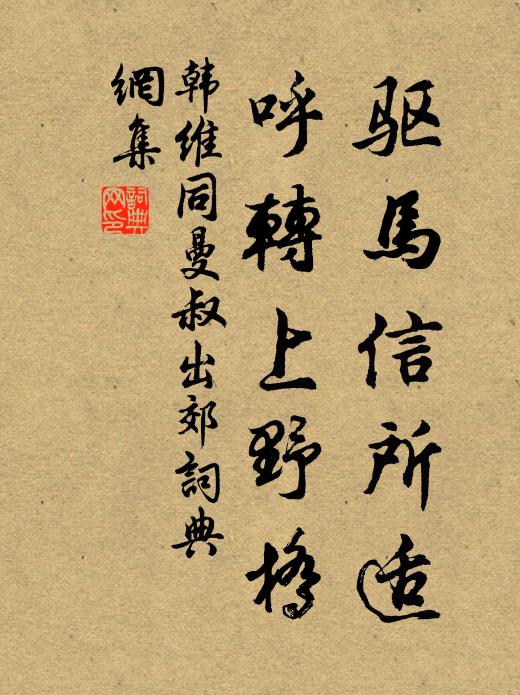 驱馬信所适
呼轉上野橋
韩維同曼叔出郊詞典
網集
詞典
网印